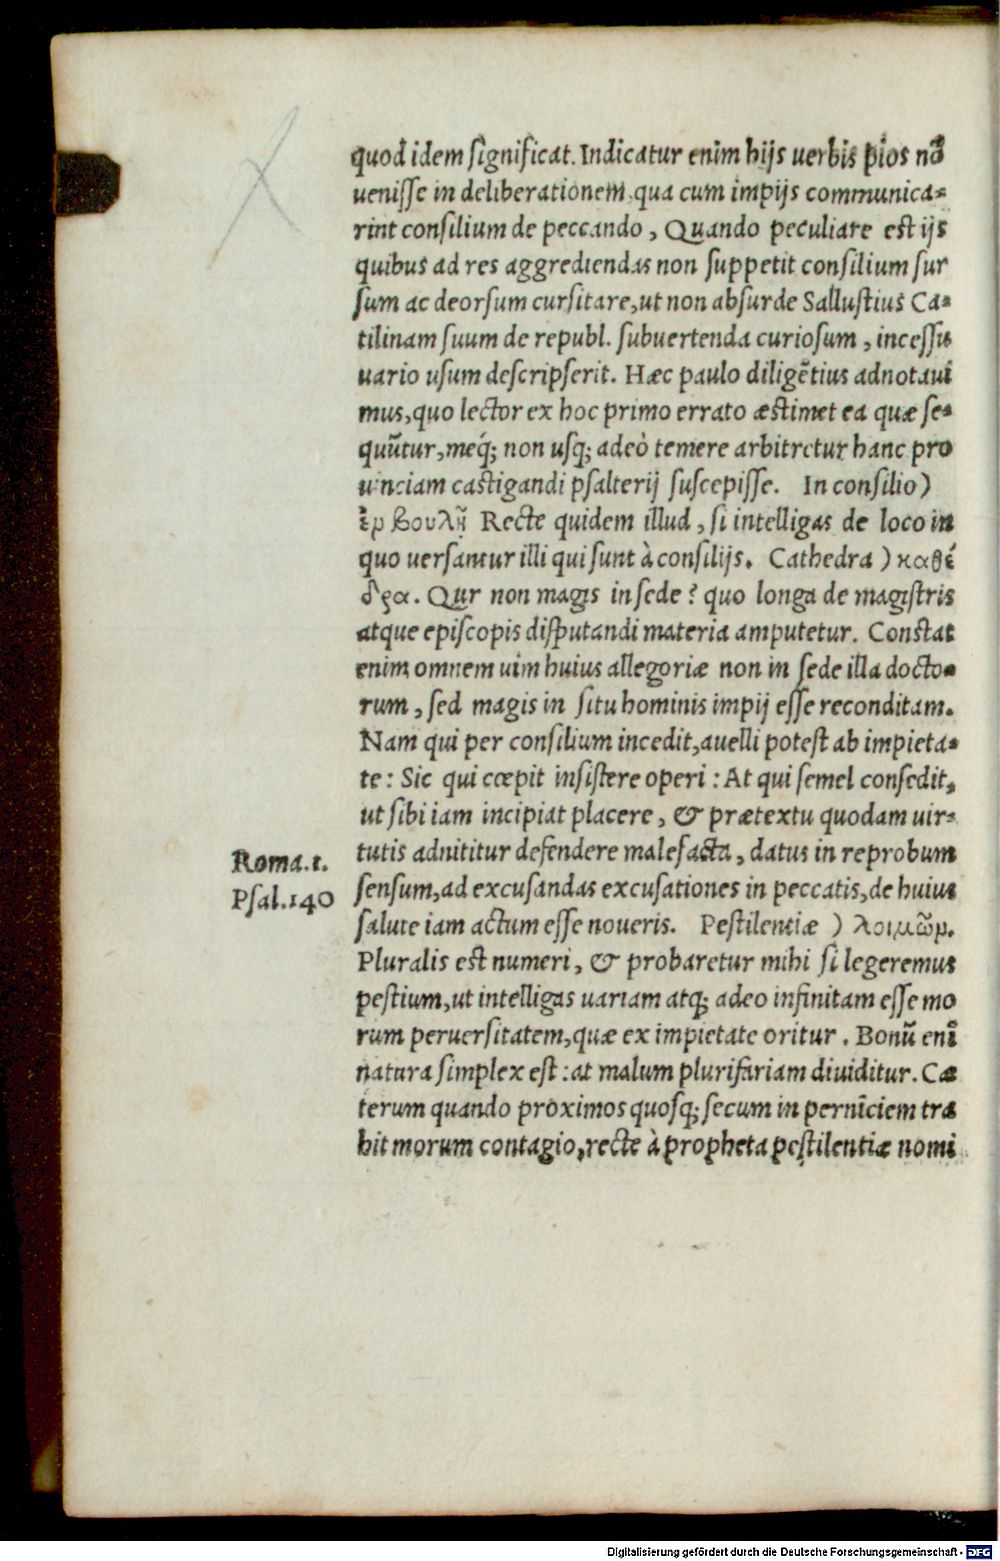 quod idem significat. Indicatur enim hijs uerbis pios nõ
uenisse in deliberationem, qua cum impijs communica-
rint consilium de peccando, Quando peculiare est ijs
quibus ad res aggrediendas non suppetit consilium sur
sum ac deorsum cursitare, ut non absurde Sallustius Ca-
tilinam suum de republ. subuertenda curiosum, incessu
uario usum descripserit. Hæc paulo diligẽtius adnotaui
mus, quo lector ex hoc primo errato æstimet ea quæ se-
quũtur, meq́; non usq; adeò temere arbitretur hanc pro
uinciam castigandi psalterij suscepisse. In consilio)
ἐν βουλῇ Recte quidem illud, si intelligas de loco in
quo uersantur illi qui sunt à consilijs. Cathedra) καθέ
δρα. Qur non magis in sede? quo longa de magistris
atque episcopis disputandi materia amputetur. Constat
enim omnem uim huius allegoriæ non in sede illa docto-
rum, sed magis in situ hominis impij esse reconditam.
Nam qui per consilium incedit, auelli potest ab impieta-
te: Sic qui cœpit insistere operi: At qui semel consedit,
ut sibi iam incipiat placere, & prætextu quodam uir-
tutis adnititur defendere malefacta, datus in reprobum
Roma.1.
sensum, ad excusandas excusationes in peccatis, de huius
Psal.140
salute iam actum esse noueris. Pestilentiæ) λοιμῶν.
Pluralis est numeri, & probaretur mihi si legeremus
pestium, ut intelligas uariam atq; adeo infinitam esse mo
rum peruersitatem, quæ ex impietate oritur. Bonũ enĩ
natura simplex est: at malum plurifariam diuiditur. Cæ
terum quando proximos quosq; secum in pernĩciem tra
hit morum contagio, recte à propheta pestilentiæ nomi
Digitalisierung gefördert durch die Deutsche Forschungsgemeinschaft - DFG